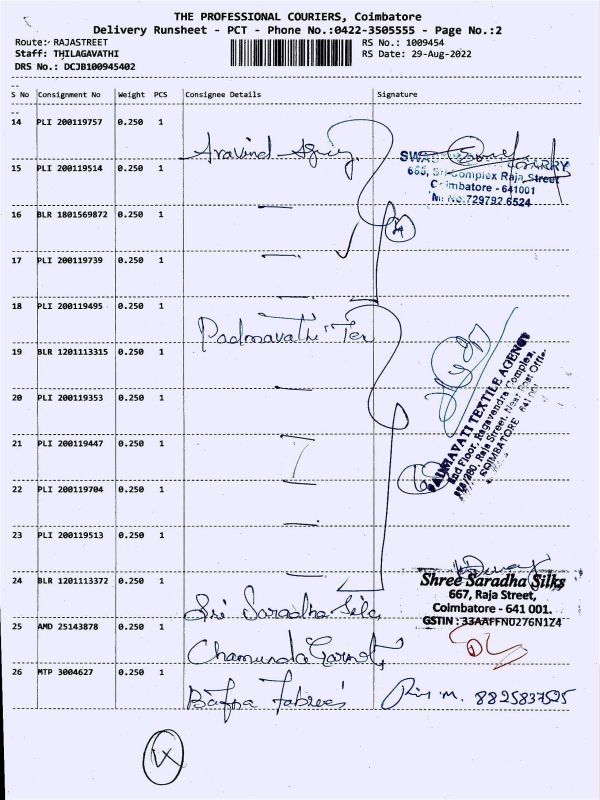 THE PROFESSIONAL COURIERS, Coimbatore
Delivery Runsheet - PCT - Phone No.:0422-3505555 - Page No.:2
Route: RAJASTREET
RS No.: 1009454
Staff: THILAGAVATHI
RS Date: 29-Aug-2022
DRS No.: DCJB100945402
S No Consignment No Weight PCS Consignee Details Signature
14 PLI 200119757 0.250 1
Aravind
15 PLI 200119514 0.250 1
665, Sri Complex Raja Street
Coimbatore - 641001
M: No.729792 6524
16 BLR 1801569872 0.250 1
17 PLI 200119739 0.250 1
18 PLI 200119495 0.250 1
Padmavathi Tex
19 BLR 1201113315 0.250 1
20 PLI 200119353 0.250 1
PADMAVATI TEXTILE AGENCY
2nd Floor, Ragavendra Complex,
Raja Street, Near Post Office
COIMBATORE - 641 001
21 PLI 200119447 0.250 1
22 PLI 200119704 0.250 1
23 PLI 200119513 0.250 1
24 BLR 1201113372 0.250 1
Shree Saradha Silks
667, Raja Street,
Coimbatore - 641 001.
GSTIN : 33AAFFN0276N1Z4
Sri Saradha Silc
25 AMD 25143878 0.250 1
Chamunda Garmet
26 MTP 3004627 0.250 1
Bafna Fabrees 8825837525